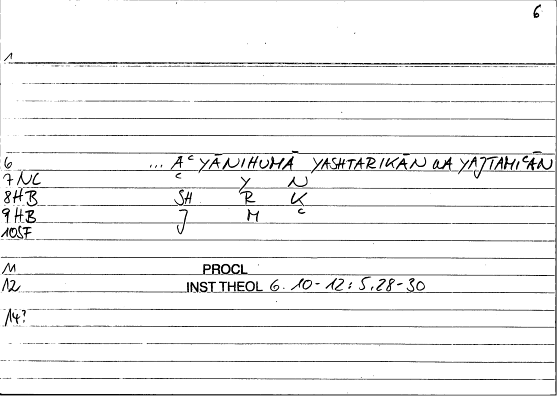 6
1
6 ... AᶜYĀNIHUMĀ YASHTARIKĀN WA YAJTAMIᶜĀN
7 NC ᶜ Y N
8 HB SH R K
9 HB J M ᶜ
10 SF
11 PROCL
12 INST THEOL 6.10-12: 5,28-30
14?